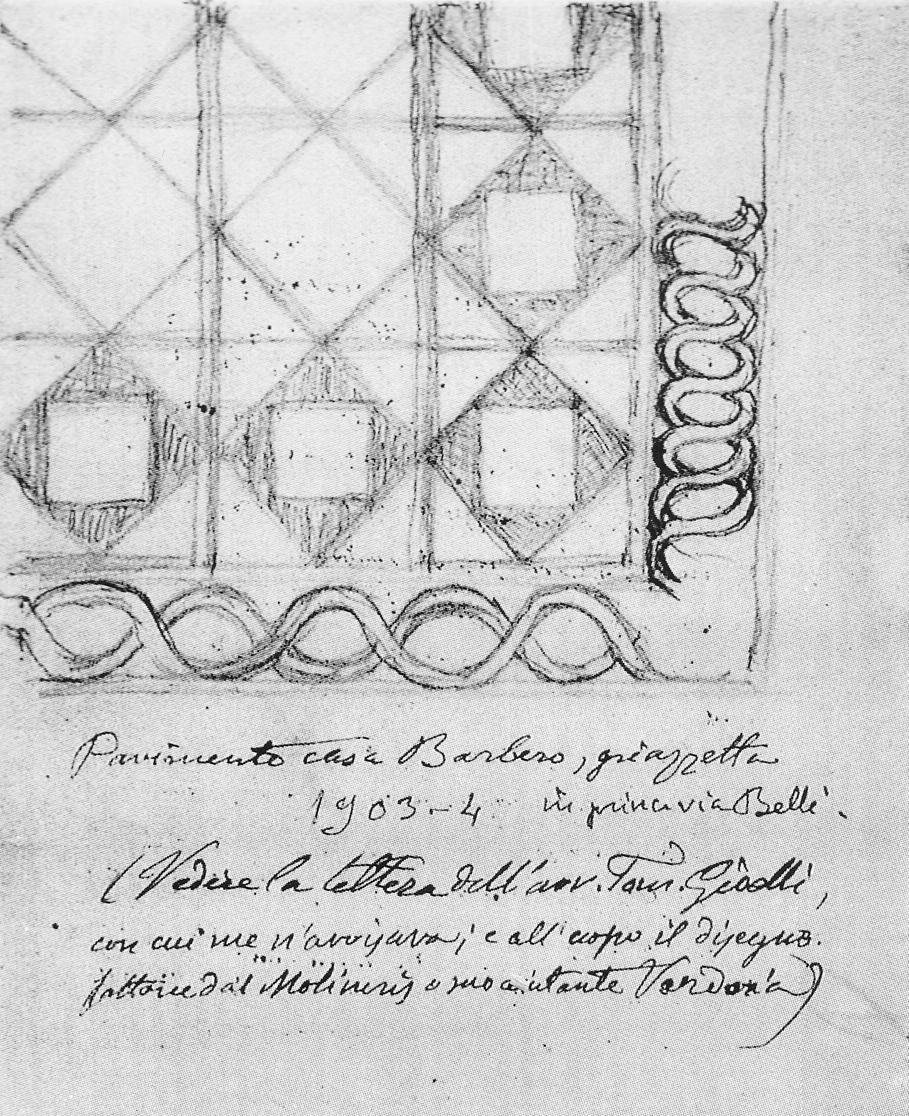 Pavimento casa Barbero, piazzetta
1903-4 in princ. via Belli.
(Vedere la lettera dell'avv. Tom. Giodli,
con cui me n'avvisava; e all'uopo il disegno.
fattone dal Molineris o suo aiutante Verdoia)